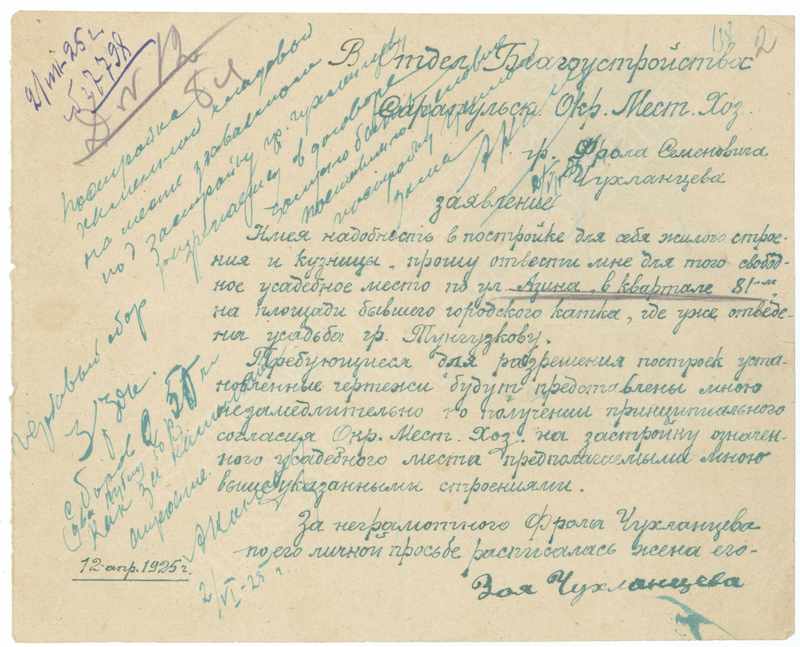 2/VII-25 г
№ 37798
8 л
118 2
Постройка
на месте
под застройку гр. Чухланцеву
разрешается, в договоре
должно быть
В Отдел Благоустройства
Сарапульск. Окр. Мест. Хоз.
гр. Фрола Семеновича
Чухланцева
заявление
Имея надобность в постройке для себя жилого строе-
ния и кузницы, прошу отвести мне для того свобод-
ное усадебное место по ул. Азина, в квартале 81-м
на площади бывшего городского катка, где уже отведе-
на усадьба гр. Тунгузкову.
Требующиеся для разрешения построек уста-
новленные чертежи будут представлены мною
незамедлительно по получении принципиального
согласия Окр. Мест. Хоз. на застройку означен-
ного усадебного места предполагаемыми мною
вышеуказанными строениями.
За неграмотного Фрола Чухланцева
по его личной просьбе расписалась жена его-
Зоя Чухланцева
12 апр. 1925 г.
гербовый сбор
Сборов 2 р 50 к
(два рубля 50 к)
как за
строение.
2/VI-25 г.